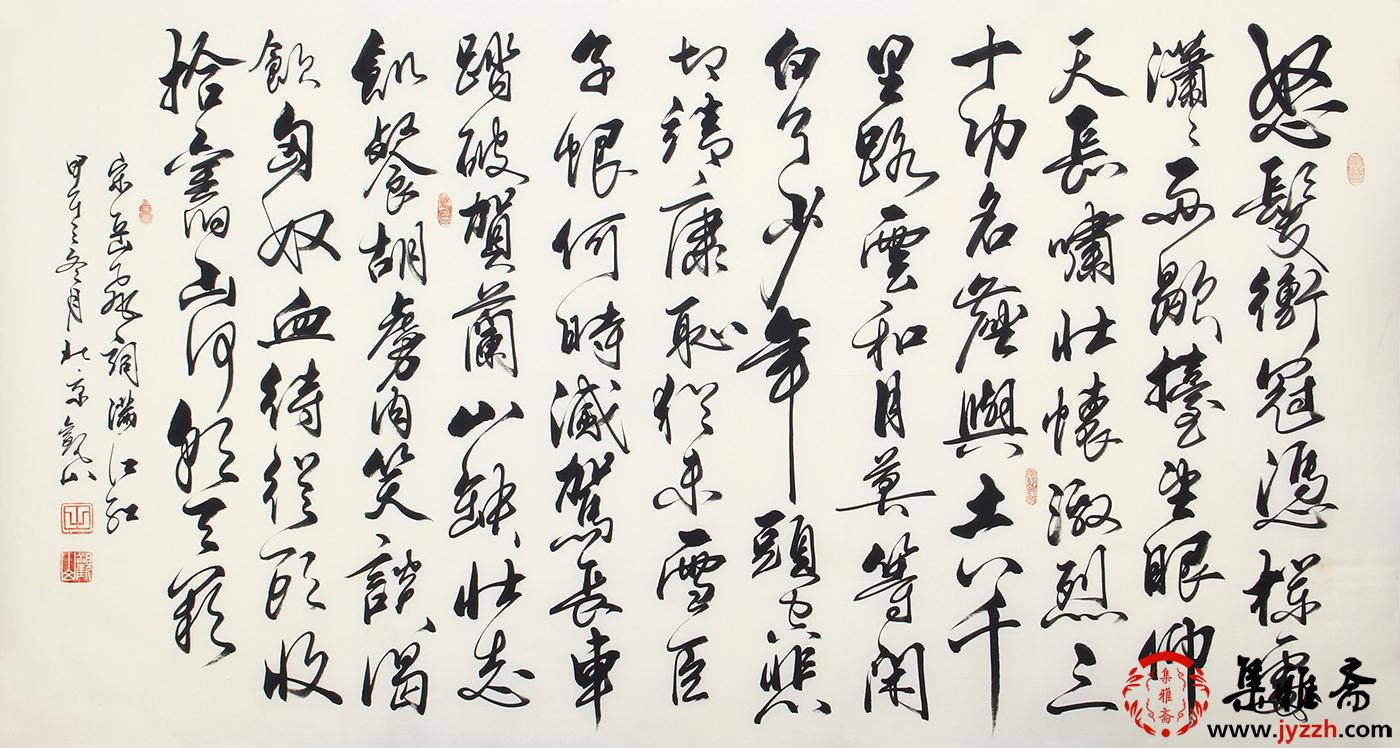 怒髮衝冠憑欄處
瀟〻雨歇擡望眼仰
天長嘯壯懷激烈三
十功名塵與土八千
里路雲和月莫等閑
白了少年頭空悲
切靖康恥猶未雪臣
子恨何時滅駕長車
踏破賀蘭山缺壯志
飢餐胡虜肉笑談渴
飲匈奴血待從頭收
拾舊山河朝天闕
宋岳飛詞滿江紅
甲午之冬月北京觀山
集雅斋
集雅斋
www.jyzzh.com